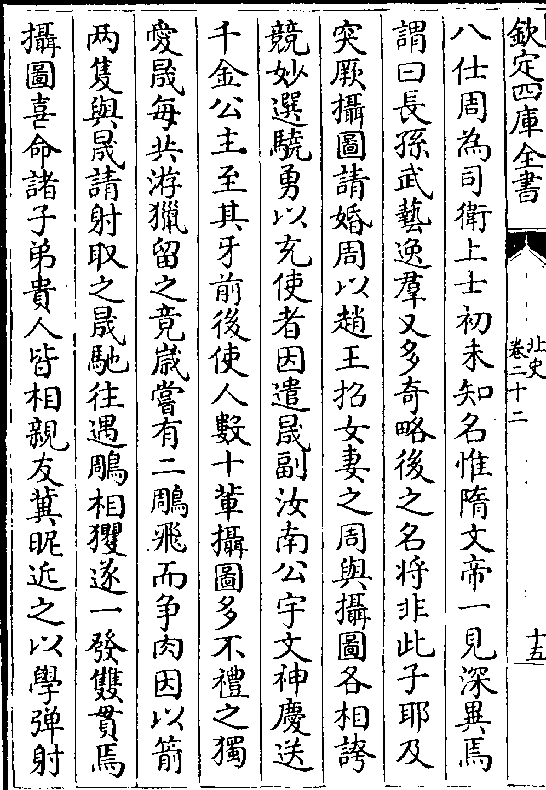 欽定四庫全書
北史
卷二十二
十五
八仕周為司衛上士初未知名惟隋文帝一見深異焉
謂曰長孫武藝逸羣又多奇略後之名将非此子耶及
突厥攝圖請婚周以趙王招女妻之周與攝圖各相誇
競妙選驍勇以充使者因遣晟副汝南公宇文神慶送
千金公主至其牙前後使人數十軰攝圖多不禮之獨
愛晟每共游獵留之竟歳嘗有二鵰飛而争肉因以箭
两隻與晟請射取之晟馳往遇鵰相玃遂一發雙貫焉
攝圖喜命諸子弟貴人皆相親友冀昵近之以學弹射